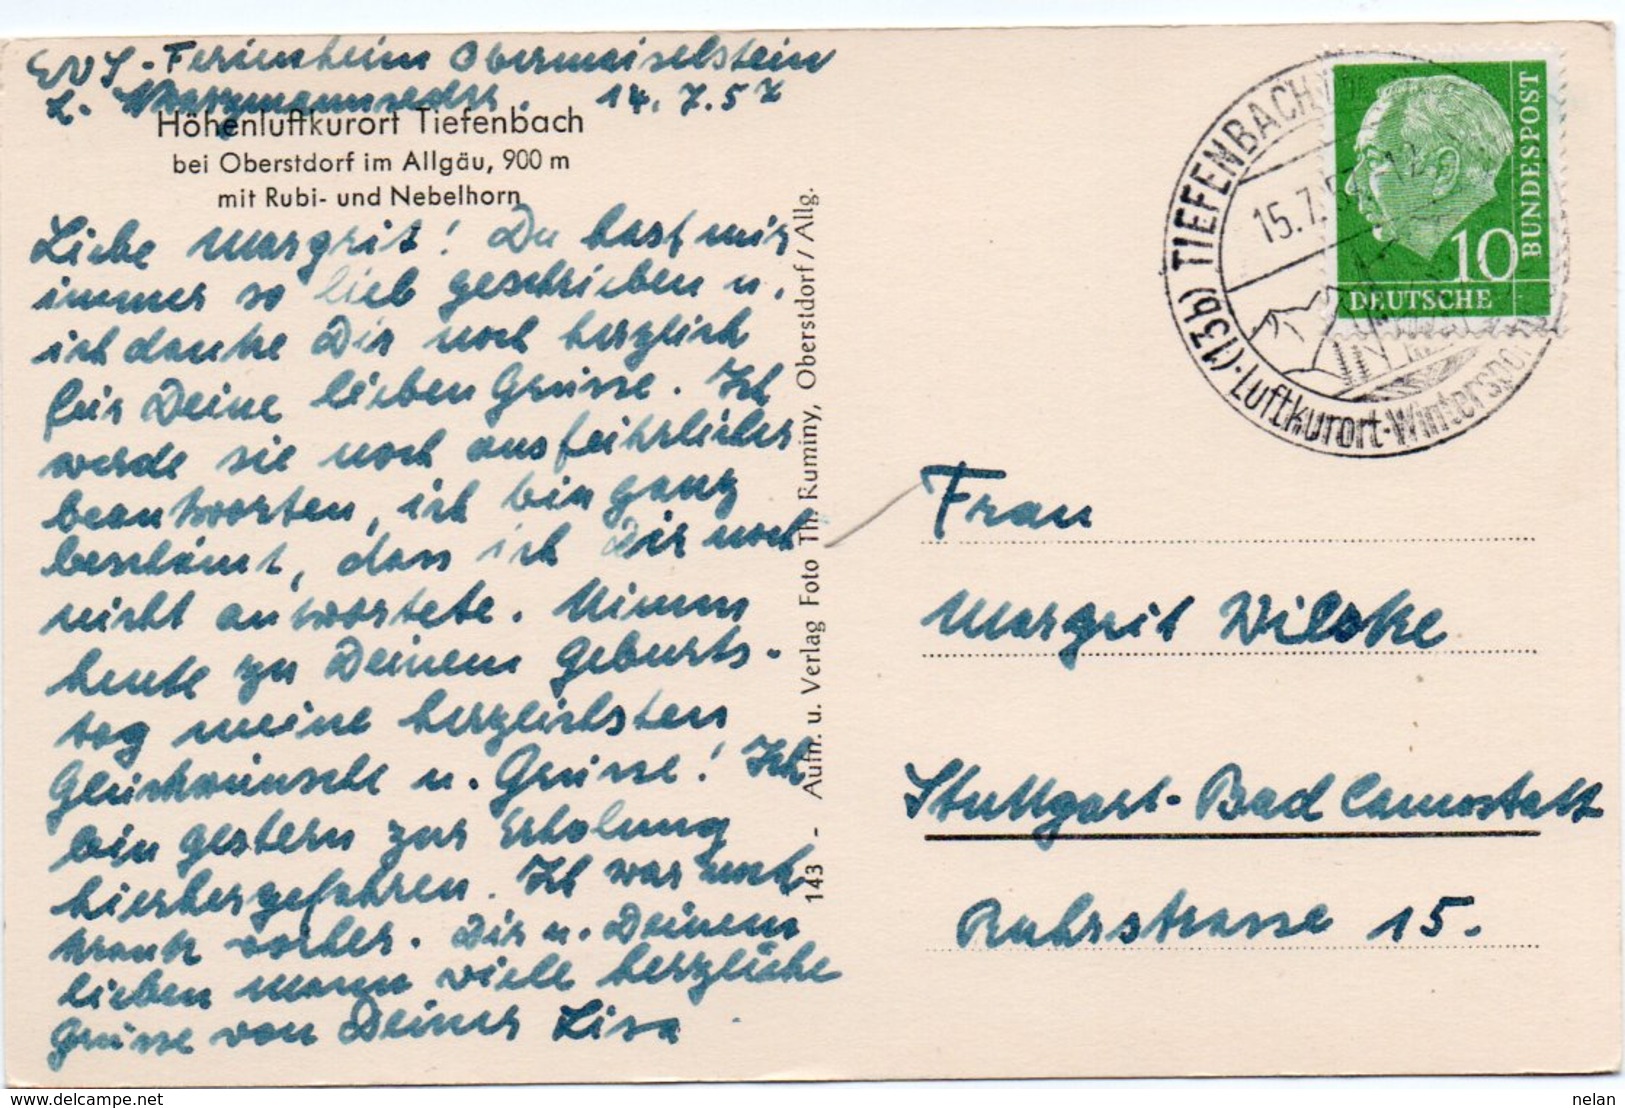 EVS-Ferienheim Obermaiselstein
14.7.57
Höhenluftkurort Tiefenbach
bei Oberstdorf im Allgäu, 900 m
mit Rubi- und Nebelhorn
Liebe Margrit! Du hast mir
immer so lieb geschrieben u.
ich danke Dir noch herzlich
für Deine lieben Grüsse. Ich
werde sie noch ausführlicher
beantworten, ich bin ganz
beschämt, dass ich Dir noch
nicht antwortete. Nimm
heute zu Deinem Geburts-
tag meine herzlichsten
Glückwünsche u. Grüsse! Ich
bin gestern zur Erholung
hierhergefahren. Ich war noch
krank vorher. Dir u. Deinem
lieben Mann viele herzliche
Grüsse von Deiner Lisa
143 - Aufn. u. Verlag Foto Th. Ruminy, Oberstdorf/Allg.
(13b) TIEFENBACH
15.7.57-12
Luftkurort·Wintersport
DEUTSCHE
BUNDESPOST
10
Frau
Margrit Wilske
Stuttgart-Bad Cannstatt
Ruhrstrasse 15.
nelan